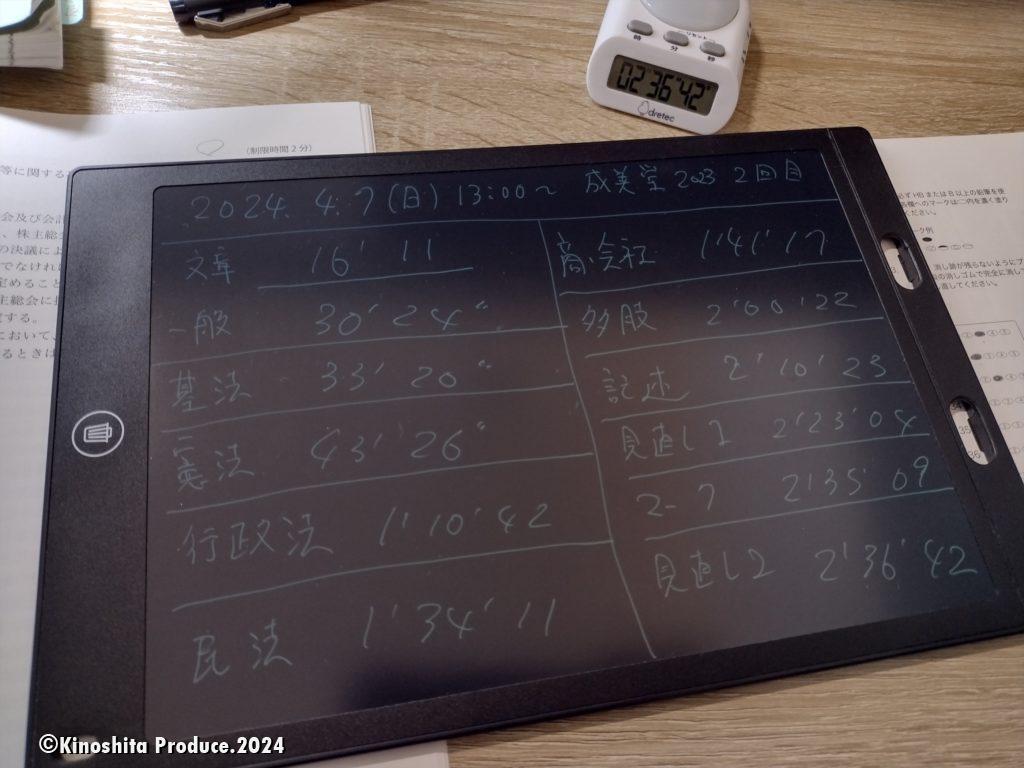 リセット
時 分 秒
02 36 42
dretec
（制限時間２分）
等に関する
会及び会計
、株主総会
の決議によ
でなければ
定めること
主総会に
する。
において、
るときは
2024. 4. 7 (日) 13:00～ 成美堂2023 2回目
文章 16' 11
一般 30' 24"
基法 33' 20"
憲法 43' 26"
行政法 1' 10' 42
民法 1' 34' 11
商・会社 1' 41' 17
多肢 2' 00' 22
記述 2' 10' 23
見直し2 2' 23' 04
2-7 2' 35' 09
見直し2 2' 36' 42
必ずHBまたはB以上の鉛筆を使
各欄へのマークは○内を濃く塗り
ください。
ーク例
消し跡が残らないようにプ
の消しゴムで完全に消して
直してください。
35
36
©Kinoshita Produce.2024